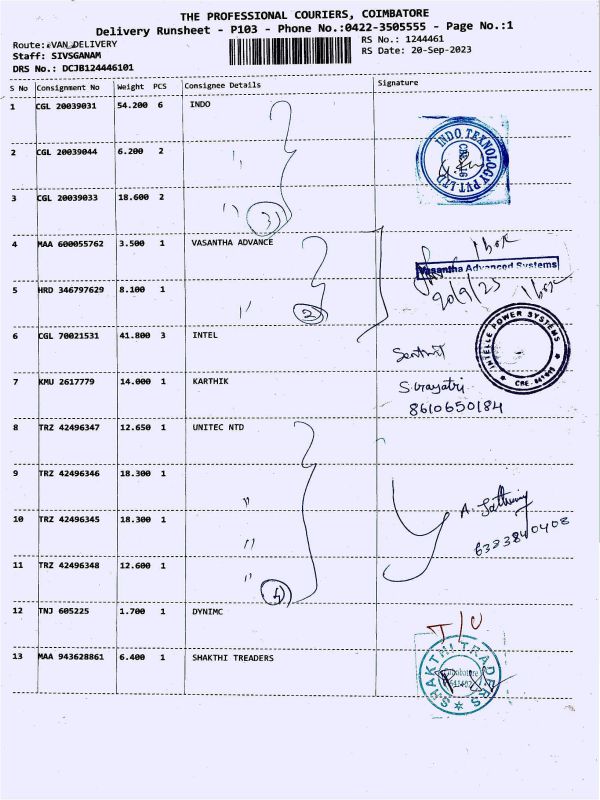 THE PROFESSIONAL COURIERS, COIMBATORE
Delivery Runsheet - P103 - Phone No.:0422-3505555 - Page No.:1
Route: VAN DELIVERY
RS No.: 1244461
Staff: SIVSGANAM
RS Date: 20-Sep-2023
DRS No.: DCJB124446101
S No Consignment No Weight PCS Consignee Details Signature
1 CGL 20039031 54.200 6 INDO
INDO TEKNOLOGY PVT LTD
2 CGL 20039044 6.200 2 ''
3 CGL 20039033 18.600 2 '' 3
4 MAA 600055762 3.500 1 VASANTHA ADVANCE
1 box
Vasantha Advanced Systems
5 HRD 346797629 8.100 1 '' 2
20/9/23 1 box
6 CGL 70021531 41.800 3 INTEL
INTELLE POWER SYSTEMS
7 KMU 2617779 14.000 1 KARTHIK
S. Gayatri
8610650184
8 TRZ 42496347 12.650 1 UNITEC NTD
9 TRZ 42496346 18.300 1 ''
10 TRZ 42496345 18.300 1 ''
6383840408
11 TRZ 42496348 12.600 1 '' 4
12 TNJ 605225 1.700 1 DYNIMC
T/O
13 MAA 943628861 6.400 1 SHAKTHI TREADERS
SHAKTHI TRADERS
Coimbatore